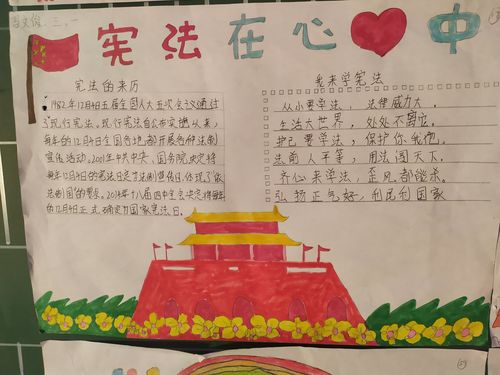 三.一
宪法在心中
宪法的来历
1982年12月4日五届全国人大五次会议通过
了现行宪法。现行宪法自公布实施以来,
每年的12月4日全国各地都开展各种法制
宣传活动。2001年中共中央、国务院决定将
每年12月4日的宪法日定为法制宣传日,体现了依
法制国的要求。2014年十八届四中全会决定将每年
的12月4日正式确定为国家宪法日。
我来学宪法
从小要学法,法律威力大。
生活大世界,处处不离它。
护己要学法,保护你我他。
法前人平等,用法闯天下。
齐心来学法,歪风都能杀。
弘扬正气好,利民利国家